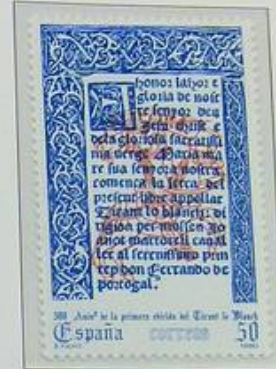 A honor lahor e
gloria de nostre
senyor deu
Jesu christ e
dela gloriosa sacratissi
ma verge Maria ma
re sua senyora nostra
comença la letra del
present libre appellat
Tirant lo blanch: di
rigida per mossen Jo
anot martorell caual
ler al serenissimo prin
cep don Ferrando de
portogal.
500 Anivº de la primera edición del Tirant lo Blanch
España correos 50